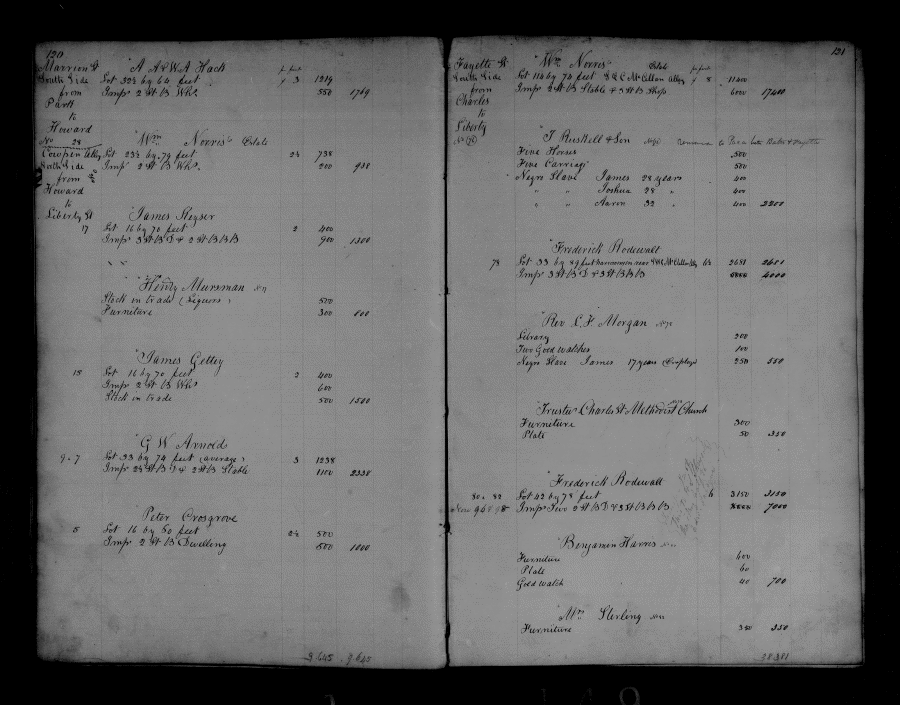 120
Marrion St
South Side
from
Park
to
Howard
No 28
A. A & W A Hack
pr foot
Lot 32½ by 64 feet 3 1219
Imps 2 St B Whs 550 1769
Cowpen Alley
North Side
from
Howard
to
Liberty St
Wm Norris Estate
Lot 23½ by 79 feet 2½ 738
Imps 2 St B Whs 200 938
James Keyser
17 Lot 16 by 70 feet 2 400
Imps 3 St B D & 2 St B B B 900 1300
" "
Henry Mursman
Stock in trade (Liquors) 500
Furniture 300 800
James Getty
15 Lot 16 by 70 feet 2 400
Imps 2 St B Whs 600
Stock in trade 500 1500
G W Arnolds
9 & 7 Lot 33 by 74 feet (average) 3 1238
Imps 2½ St B D & 2 St B Stable 1100 2338
Peter Crosgrove
5 Lot 16 by 80 feet 2½ 500
Imps 2 St B Dwelling 500 1000
9.645 9.645
121
Fayette St
South Side
from
Charles
to
Liberty
Wm Norris Estate
pr foot
Lot 114 by 74 feet & C McClellan Alley 8 11400
Imps 2 St B Stable & 3 St B Shop 6000 17400
J Russell & Son
Five Horses 500
Five Carriag 500
Negro Slave James 28 years 400
" " Joshua 28 " 400
" " Aaron 32 " 400 2200
Frederick Rodewalt
78 Lot 33 by 89 feet 2681 2600
Imps 3 St B D & 3 St B B B 4000
Rev L. F. Morgan
Library 200
Two Gold Watches 100
Negro Slave James 17 years 250 550
Trustees Charles St Methodist Church
Furniture 300
Plate 50 350
Frederick Rodewalt
80 & 82 Lot 42 by 78 feet 6 3150 3150
Now 96 & 98 Imps Two 2 St B D & 3 St B B B 7000
Benjamin Harris
Furniture 600
Plate 60
Gold watch 40 700
Mrs Sterling
Furniture 350 350